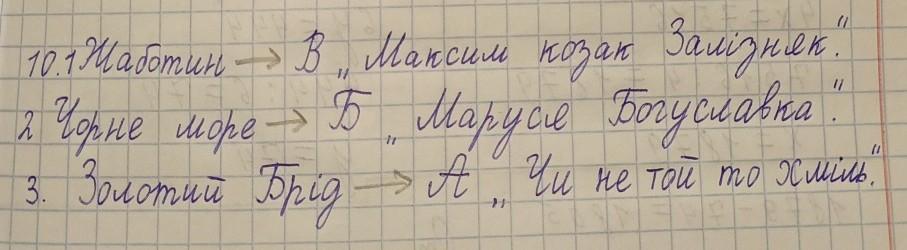 10.1 Жаботин → В „Максим козак Залізняк."
2 Чорне море → Б „Маруся Богуславка."
3. Золотий Брід → А „Чи не той то Хміль."